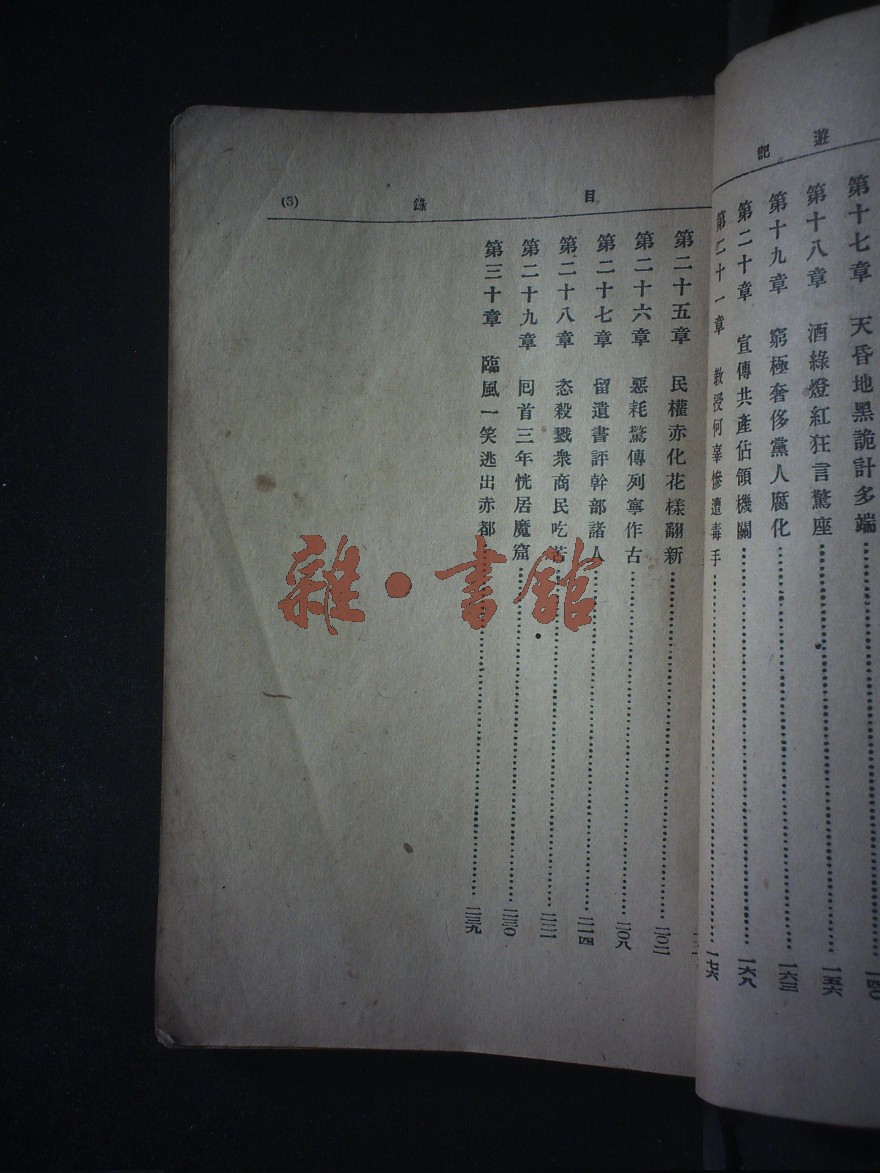 遊記
第十七章　天昏地黑詭計多端……一四〇
第十八章　酒綠燈紅狂言驚座……一五六
第十九章　窮極奢侈黨人腐化……一六三
第二十章　宣傳共產佔領機關……一六八
第二十一章　教授何辜慘遭毒手……一七六
目錄　(3)
第二十五章　民權赤化花樣翻新……二〇二
第二十六章　惡耗驚傳列寧作古……二〇八
第二十七章　留遺書評幹部諸人……二一四
第二十八章　恣殺戮衆商民吃苦……二二一
第二十九章　囘首三年恍居魔窟……二三〇
第三十章　臨風一笑逃出赤都……二三九
雜·書館